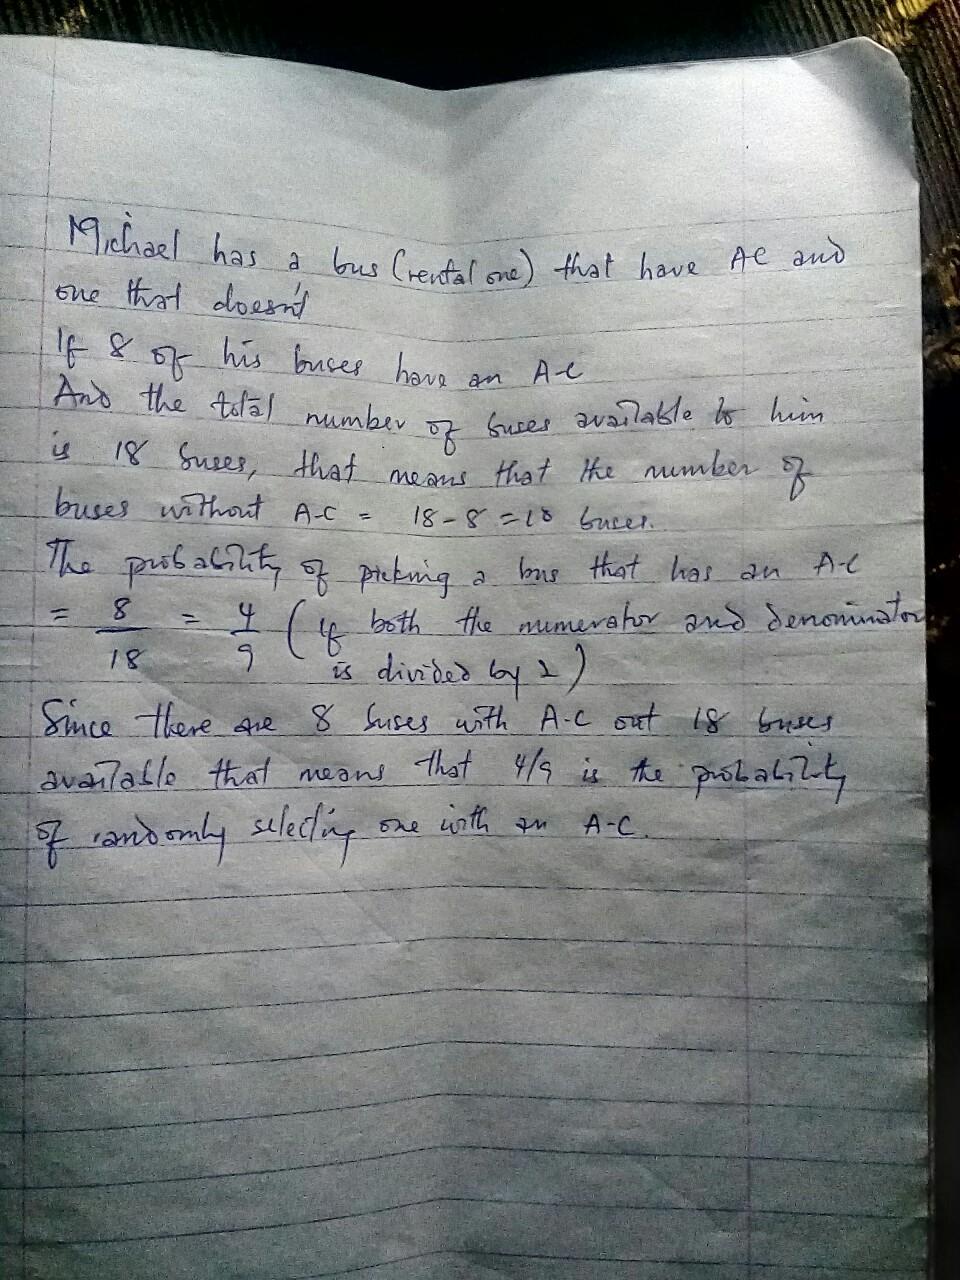 Michael has a bus (rental one) that have AC and
one that doesn't
If 8 of his buses have an A-C
And the total number of buses available to him
is 18 buses, that means that the number of
buses without A-C = 18-8 = 10 buses.
The probability of picking a bus that has an A-C
= 8/18 = 4/9 (if both the numerator and denominator
is divided by 2)
Since there are 8 buses with A-C out 18 buses
available that means that 4/9 is the probability
of randomly selecting one with an A-C.